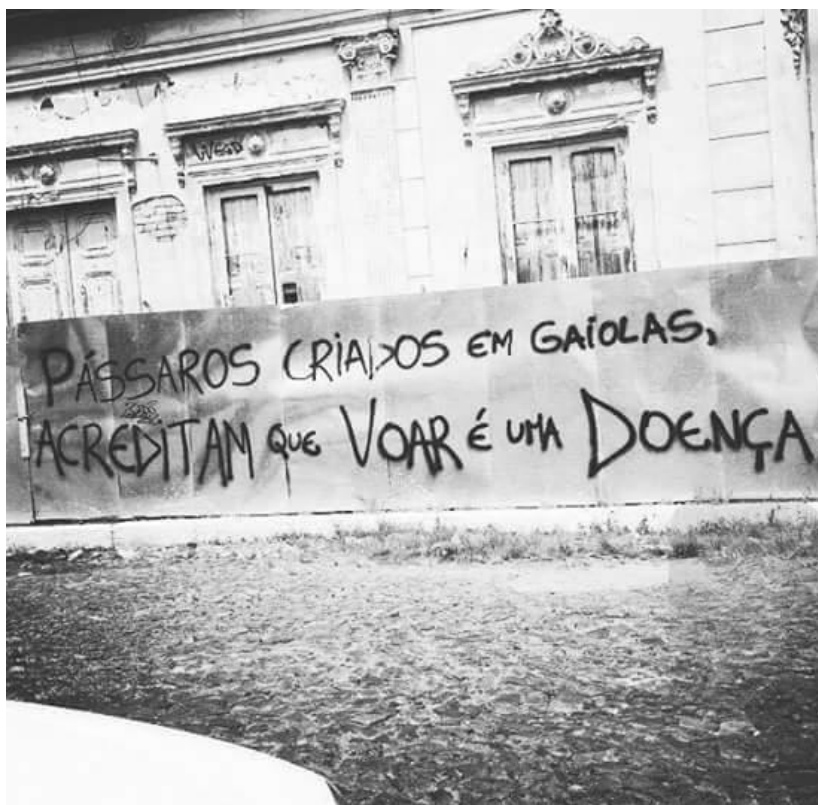 PÁSSAROS CRIADOS EM GAIOLAS,
ACREDITAM QUE VOAR É UMA DOENÇA